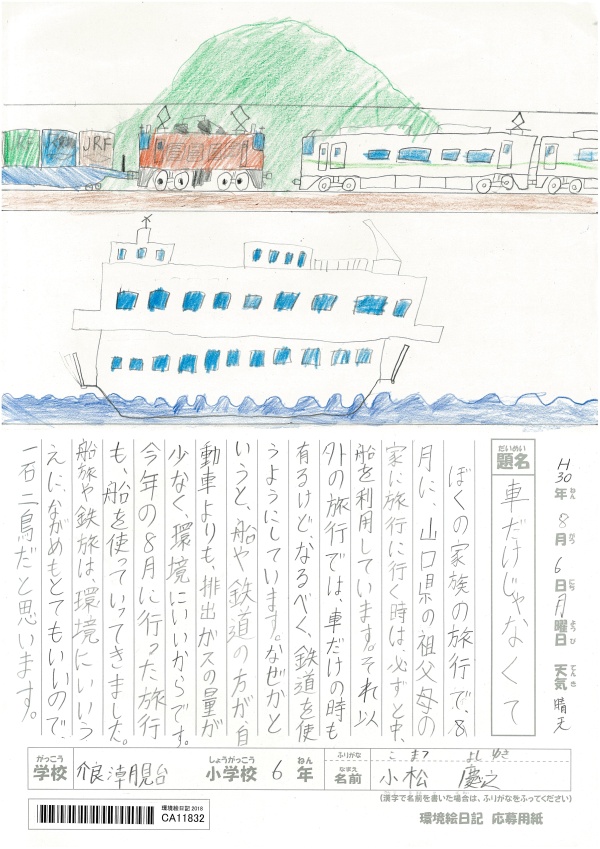 JRF
JRF
JRF
H30年 8月 6日 月曜日 天気 晴天
ねん がつ にち ようび てんき
だいめい
題名 車だけじゃなくて
ぼくの家族の旅行で、8
月に、山口県の祖父母の
家に旅行に行く時は必ずと中、
船を利用しています。それ以
外の旅行では、車だけの時も
有るけど、なるべく、鉄道を使
うようにしています。なぜかと
いうと、船や鉄道の方が自
動車よりも、排出ガスの量が
少なく、環境にいいからです。
今年の8月に行った旅行
も、船を使っていってきました。
船旅や鉄旅は、環境にいいう
えに、ながめもとてもいいので、
一石二鳥だと思います。
がっこう しょうがっこう ねん ふりがな こまつ よしゆき
学校 小学校 6年 なまえ 名前 小松 慶之
(漢字で名前を書いた場合は、ふりがなをふってください)
環境絵日記2018
CA11832
環境絵日記 応募用紙